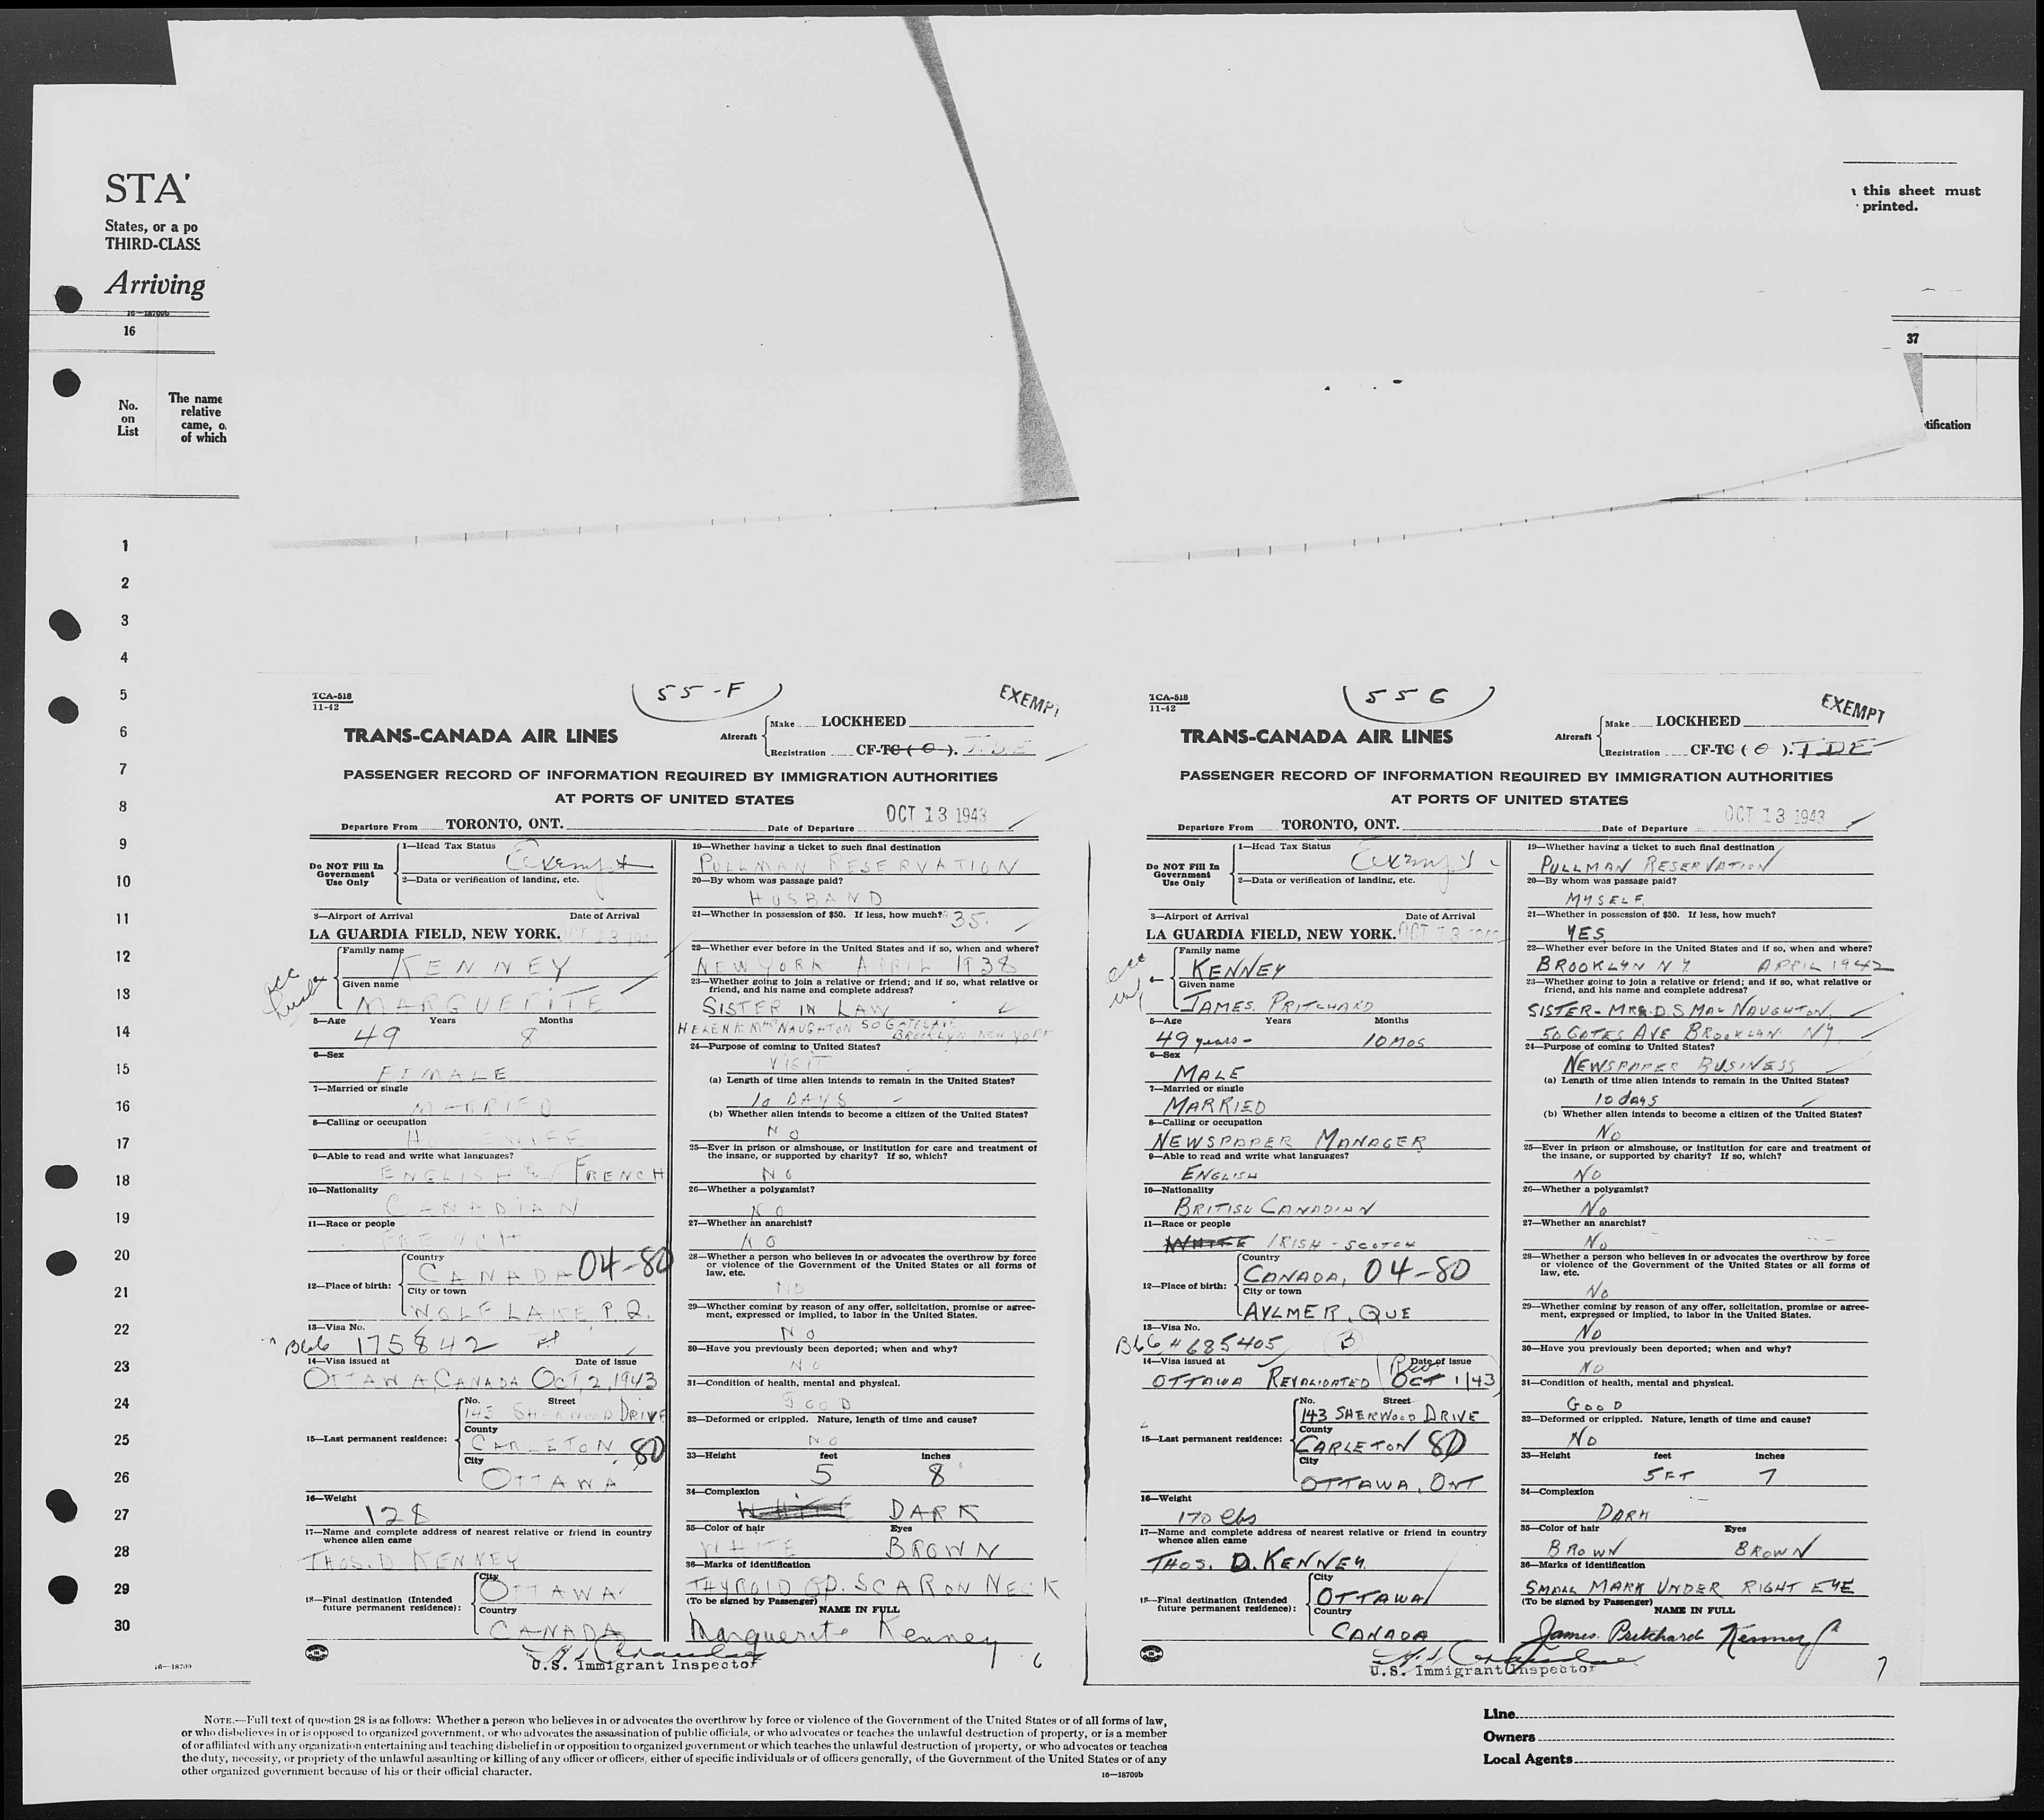 STA'
States, or a po
THIRD-CLASS
Arriving
16—18709b
16
No.
on
List
The name
relative
came, o
of which
this sheet must
printed.
37
tification
1
2
3
4
5
6
7
8
9
10
11
12
13
14
15
16
17
18
19
20
21
22
23
24
25
26
27
28
29
30
16—18709
TCA-518
11-42
55-F
EXEMPT
TRANS-CANADA AIR LINES
Aircraft
Make LOCKHEED
Registration CF-TC ( O ). T.D.E
PASSENGER RECORD OF INFORMATION REQUIRED BY IMMIGRATION AUTHORITIES
AT PORTS OF UNITED STATES
OCT 13 1943
Departure From TORONTO, ONT. Date of Departure
Do NOT Fill In
Government
Use Only
1—Head Tax Status
Exempt
2—Data or verification of landing, etc.
3—Airport of Arrival Date of Arrival
LA GUARDIA FIELD, NEW YORK. OCT 13 194
Family name
KENNEY
Given name
MARGUERITE
5—Age Years Months
49 8
6—Sex
FEMALE
7—Married or single
MARRIED
8—Calling or occupation
HOUSEWIFE
9—Able to read and write what languages?
ENGLISH & FRENCH
10—Nationality
CANADIAN
11—Race or people
FRENCH
12—Place of birth:
Country
CANADA 04-80
City or town
WOLF LAKE, P.Q.
13—Visa No.
B66 175842
14—Visa issued at Date of issue
OTTAWA, CANADA OCT, 2, 1943
15—Last permanent residence:
No. Street
143 SHERWOOD DRIVE
County
CARLETON, 80
City
OTTAWA
16—Weight
128
17—Name and complete address of nearest relative or friend in country
whence alien came
THOS. D KENNEY
18—Final destination (Intended
future permanent residence):
City
OTTAWA
Country
CANADA
19—Whether having a ticket to such final destination
PULLMAN RESERVATION
20—By whom was passage paid?
HUSBAND
21—Whether in possession of $50. If less, how much? 35.
22—Whether ever before in the United States and if so, when and where?
NEW YORK APRIL 1938
23—Whether going to join a relative or friend; and if so, what relative or
friend, and his name and complete address?
SISTER IN LAW
HELEN K MACNAUGHTON 50 GATES AV.
BROOKLYN NEW YORK
24—Purpose of coming to United States?
VISIT
(a) Length of time alien intends to remain in the United States?
10 DAYS
(b) Whether alien intends to become a citizen of the United States?
NO
25—Ever in prison or almshouse, or institution for care and treatment of
the insane, or supported by charity? If so, which?
NO
26—Whether a polygamist?
NO
27—Whether an anarchist?
NO
28—Whether a person who believes in or advocates the overthrow by force
or violence of the Government of the United States or all forms of
law, etc.
NO
29—Whether coming by reason of any offer, solicitation, promise or agree-
ment, expressed or implied, to labor in the United States.
NO
30—Have you previously been deported; when and why?
NO
31—Condition of health, mental and physical.
GOOD
32—Deformed or crippled. Nature, length of time and cause?
NO
33—Height feet inches
5 8
34—Complexion
DARK
35—Color of hair Eyes
WHITE BROWN
36—Marks of identification
THYROID OP. SCAR ON NECK
(To be signed by Passenger)
NAME IN FULL
Marguerite Kenney
U.S. Immigrant Inspector
6
TCA-518
11-42
55G
EXEMPT
TRANS-CANADA AIR LINES
Aircraft
Make LOCKHEED
Registration CF-TC ( O ). TDE
PASSENGER RECORD OF INFORMATION REQUIRED BY IMMIGRATION AUTHORITIES
AT PORTS OF UNITED STATES
OCT 13 1943
Departure From TORONTO, ONT. Date of Departure
Do NOT Fill In
Government
Use Only
1—Head Tax Status
Exempt
2—Data or verification of landing, etc.
3—Airport of Arrival Date of Arrival
LA GUARDIA FIELD, NEW YORK. OCT 13 1943
Family name
KENNEY
Given name
JAMES PRITCHARD
5—Age Years Months
49 years - 10 MOS
6—Sex
MALE
7—Married or single
MARRIED
8—Calling or occupation
NEWSPAPER MANAGER
9—Able to read and write what languages?
ENGLISH
10—Nationality
BRITISH CANADIAN
11—Race or people
WHITE IRISH - SCOTCH
12—Place of birth:
Country
CANADA, 04-80
City or town
AYLMER, QUE
13—Visa No.
B66 # 685405 B
14—Visa issued at Date of issue
OTTAWA REVALIDATED OCT 1/43
15—Last permanent residence:
No. Street
143 SHERWOOD DRIVE
County
CARLETON 80
City
OTTAWA, ONT
16—Weight
170 lbs
17—Name and complete address of nearest relative or friend in country
whence alien came
THOS. D. KENNEY.
18—Final destination (Intended
future permanent residence):
City
OTTAWA
Country
CANADA
19—Whether having a ticket to such final destination
PULLMAN RESERVATION
20—By whom was passage paid?
MYSELF
21—Whether in possession of $50. If less, how much?
YES
22—Whether ever before in the United States and if so, when and where?
BROOKLYN N Y. APRIL 1942
23—Whether going to join a relative or friend; and if so, what relative or
friend, and his name and complete address?
SISTER - MRS. D. S MACNAUGHTON
50 GATES AVE BROOKLYN NY.
24—Purpose of coming to United States?
NEWSPAPER BUSINESS
(a) Length of time alien intends to remain in the United States?
10 days
(b) Whether alien intends to become a citizen of the United States?
NO
25—Ever in prison or almshouse, or institution for care and treatment of
the insane, or supported by charity? If so, which?
NO
26—Whether a polygamist?
NO
27—Whether an anarchist?
NO
28—Whether a person who believes in or advocates the overthrow by force
or violence of the Government of the United States or all forms of
law, etc.
NO
29—Whether coming by reason of any offer, solicitation, promise or agree-
ment, expressed or implied, to labor in the United States.
NO
30—Have you previously been deported; when and why?
NO
31—Condition of health, mental and physical.
GOOD
32—Deformed or crippled. Nature, length of time and cause?
NO
33—Height feet inches
5 FT 7
34—Complexion
DARK
35—Color of hair Eyes
BROWN BROWN
36—Marks of identification
SMALL MARK UNDER RIGHT EYE
(To be signed by Passenger)
NAME IN FULL
James Pritchard Kenney
U.S. Immigrant Inspector
7
NOTE.—Full text of question 28 is as follows: Whether a person who believes in or advocates the overthrow by force or violence of the Government of the United States or of all forms of law,
or who disbelieves in or is opposed to organized government, or who advocates the assassination of public officials, or who advocates or teaches the unlawful destruction of property, or is a member
of or affiliated with any organization entertaining and teaching disbelief in or opposition to organized government or which teaches the unlawful destruction of property, or who advocates or teaches
the duty, necessity, or propriety of the unlawful assaulting or killing of any officer or officers, either of specific individuals or of officers generally, of the Government of the United States or of any
other organized government because of his or their official character.
16—18709b
Line
Owners
Local Agents